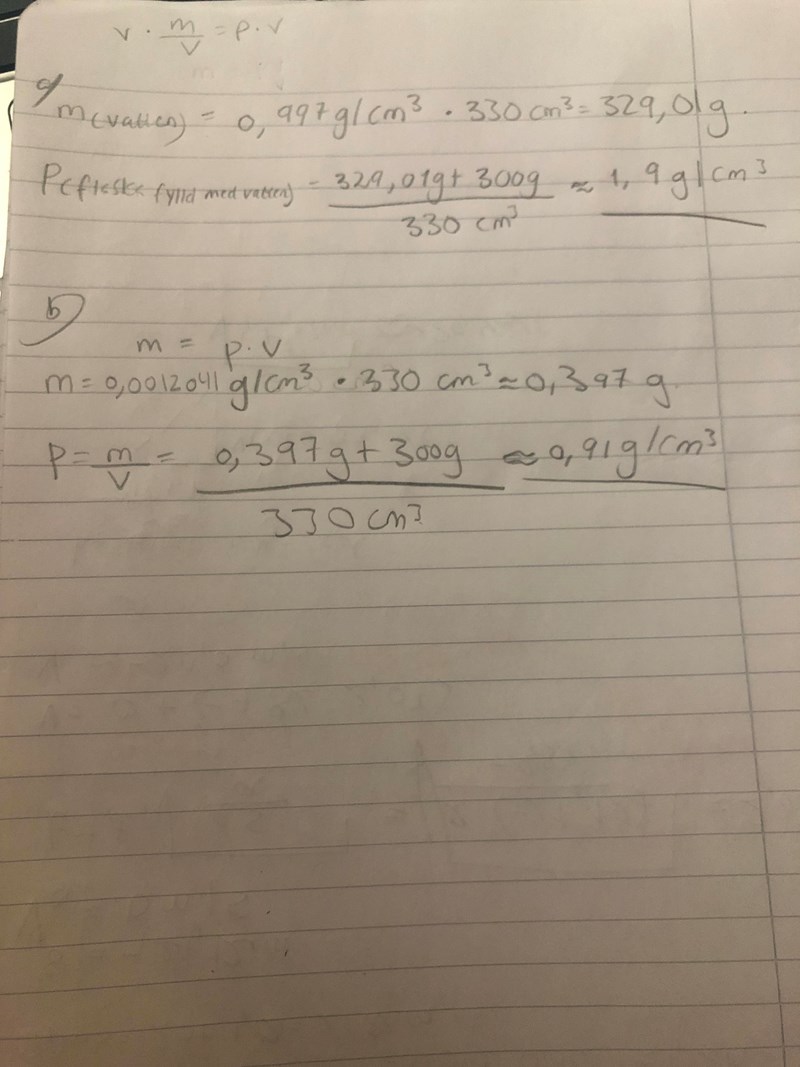 v · m/V = p · v
a) m(vatten) = 0,997 g/cm³ · 330 cm³ = 329,01 g.
P(flaska fylld med vatten) = 329,01g + 300g / 330 cm³ ≈ 1,9 g/cm³
b)
m = p · V
m = 0,0012041 g/cm³ · 330 cm³ ≈ 0,397 g
P = m/V = 0,397g + 300g / 330 cm³ ≈ 0,91 g/cm³